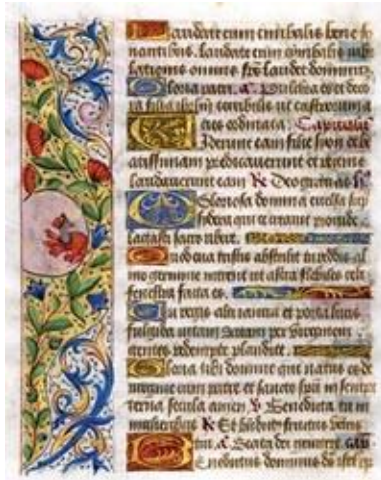 Laudate eum cimbalis bene so
nantibus. laudate eum cimbalis iubi
lationis omnis sps laudet dominum
Gloria patri. a. Pulchra es et deco
ra filia iherlm terribilis ut castrorum a
cies ordinata. Capitulum
Viderunt eam filie syon et be
atissimam predicaverunt et regine
laudaverunt eam R Deo gratias
Gloriosa domina excelsa sup
sidera qui te creavit provide
lactasti sacro ubere.
Quod eva tristis abstulit tu reddis al
mo germine intrent ut astra flebiles celi
fenestra facta es.
Tu regis alti ianua et porta lucis
fulgida vitam datam per virginem
gentes redempte plaudite.
Gloria tibi domine qui natus es de
virgine cum patre et sancto spu in sempi
terna secula amen. v Benedicta tu in
mulieribus R Et benedictus fructus ventris
tui. a Beata dei genitrix. can
Benedictus dominus deus